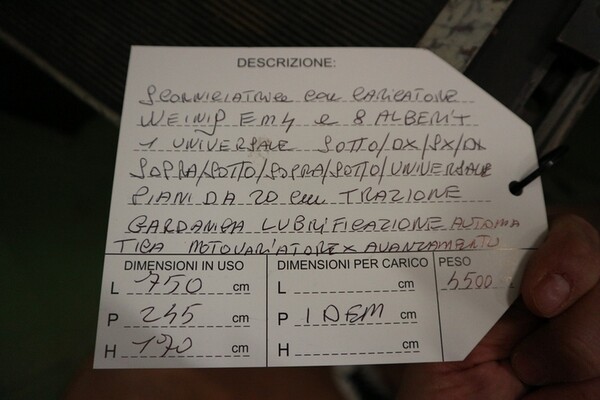 DESCRIZIONE:
SCORNICIATRICE CON CARICATORE
WEINIG EM4 e 8 ALBERI +
1 UNIVERSALE SOTTO/DX/SX/DX
SOPRA/SOTTO/SOPRA/SOTTO/UNIVERSALE
PIANI DA 20 cm TRAZIONE
CARDANICA LUBRIFICAZIONE AUTOMA
TICA MOTOVARIATORE X AVANZAMENTO
DIMENSIONI IN USO
L 750 cm
P 245 cm
H 170 cm
DIMENSIONI PER CARICO
L cm
P IDEM cm
H cm
PESO
5500